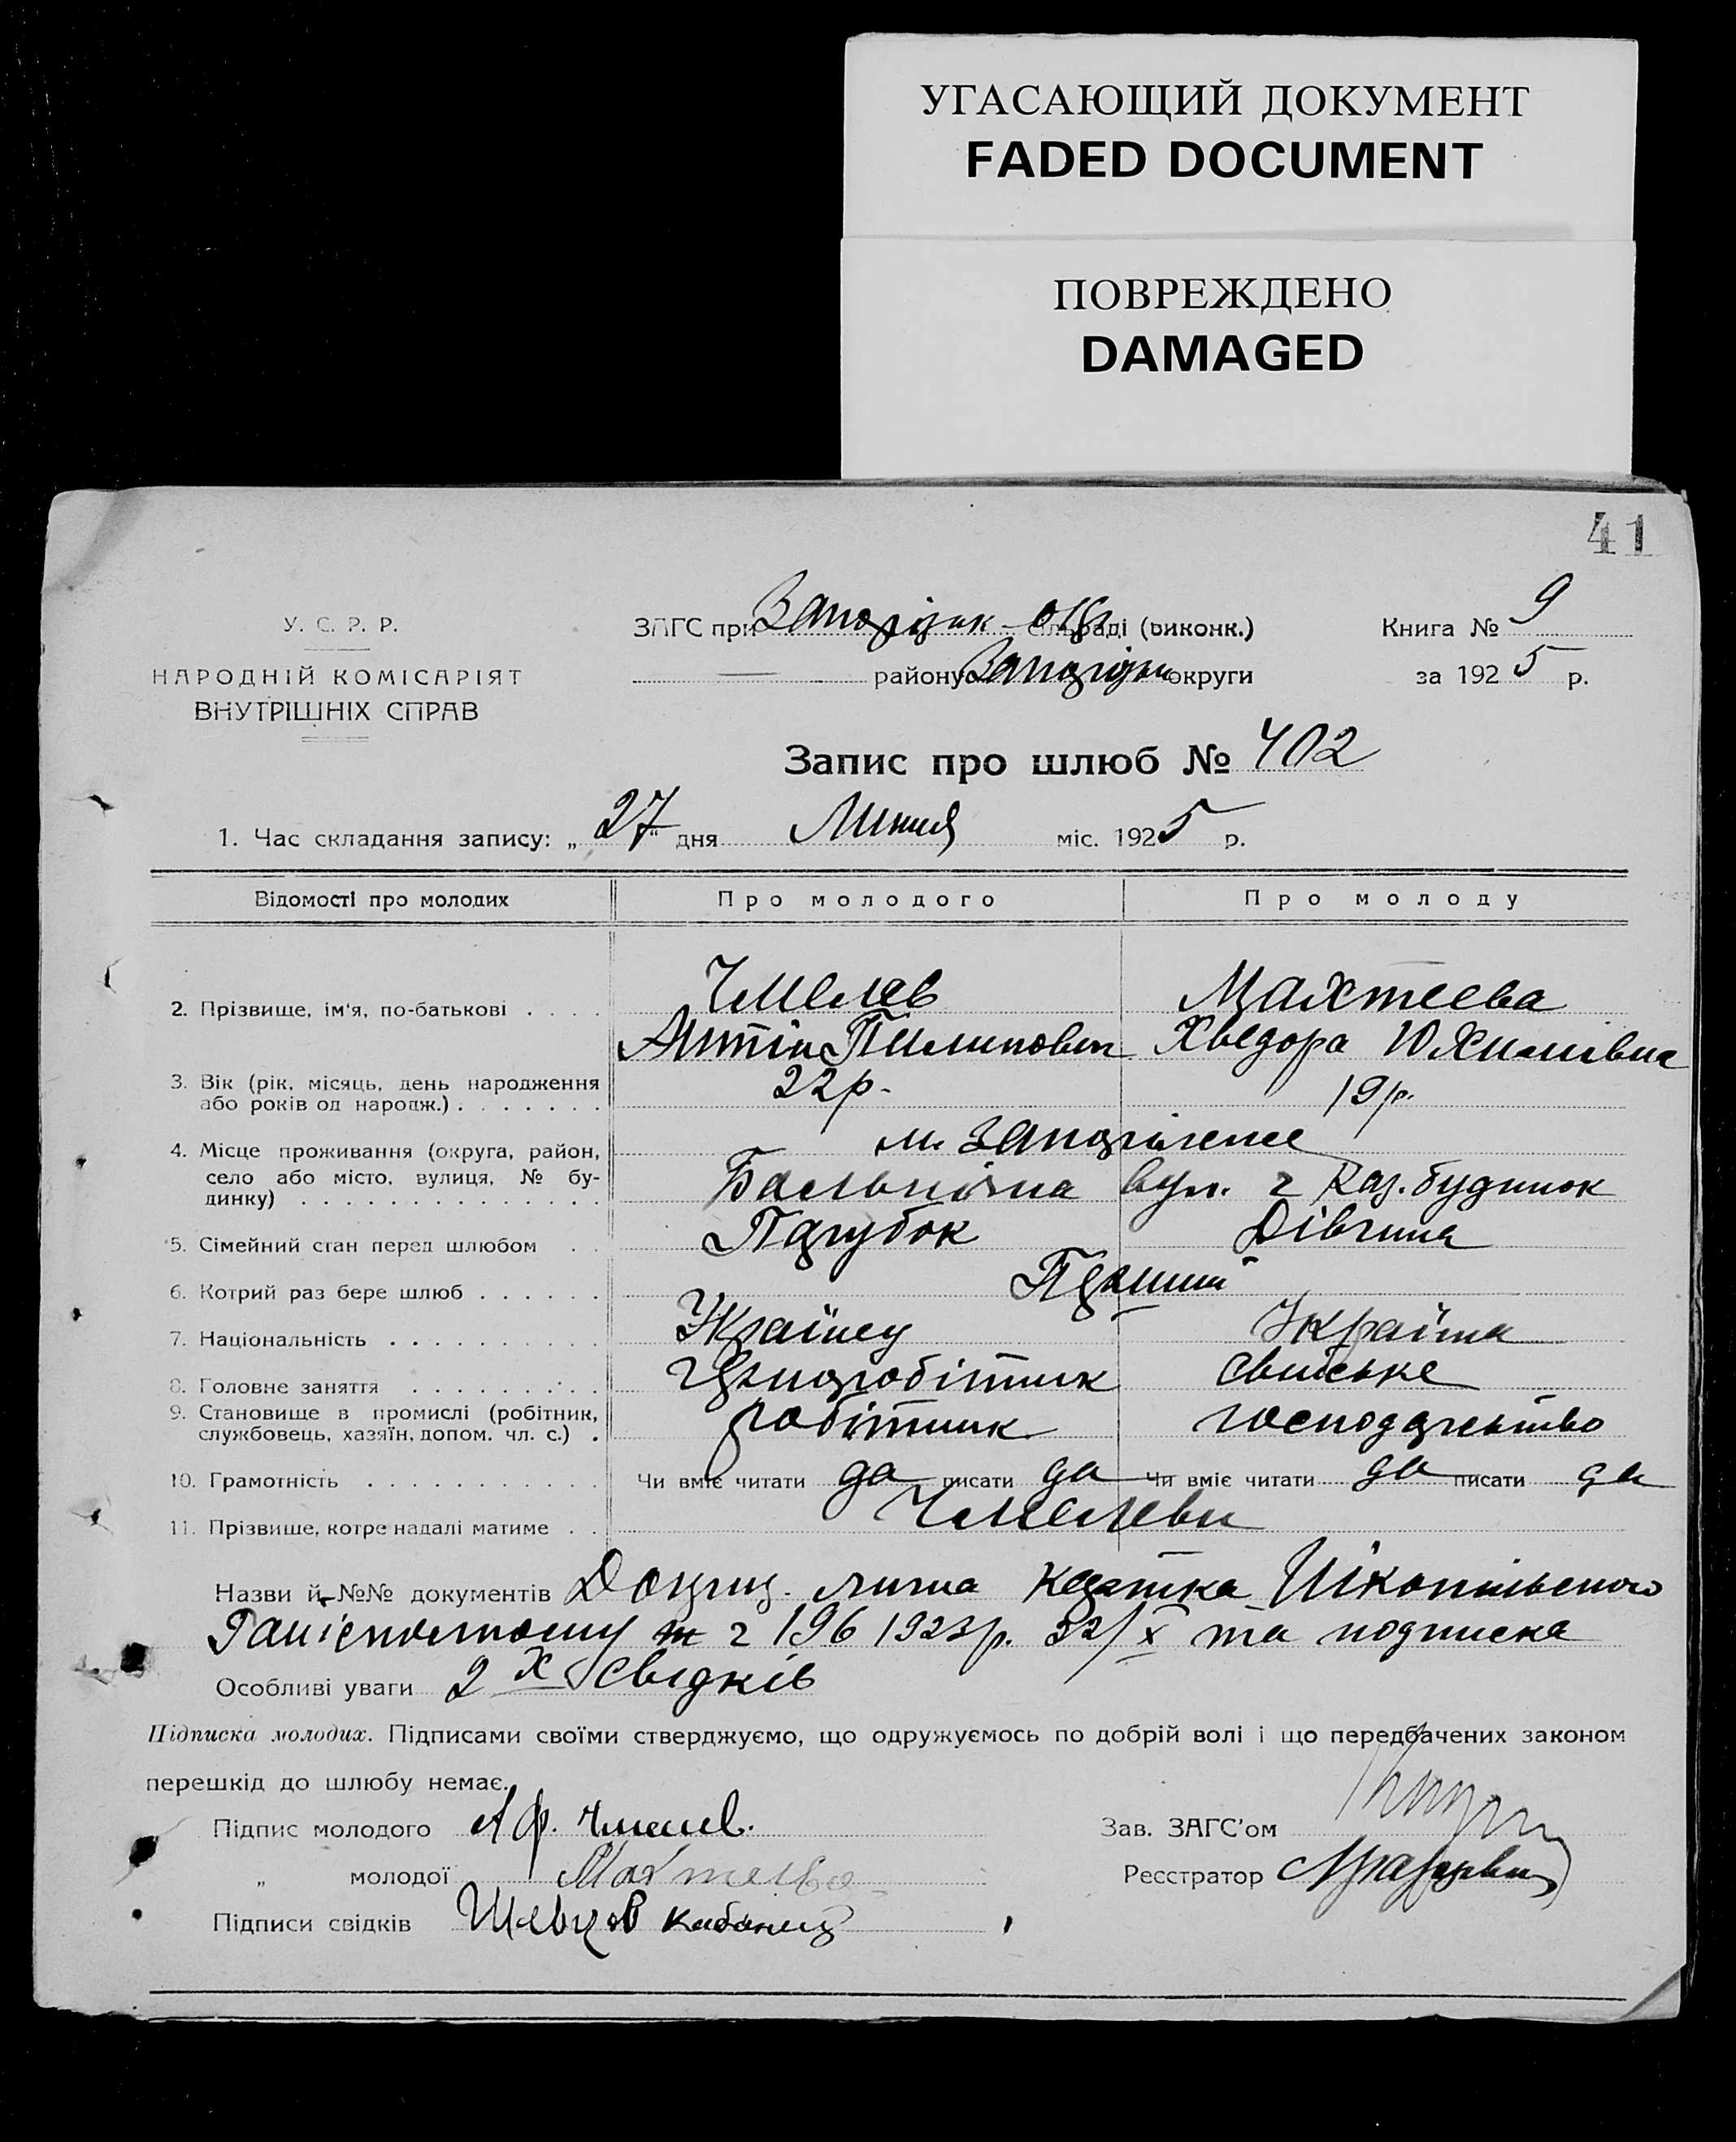 УГАСАЮЩИЙ ДОКУМЕНТ
FADED DOCUMENT
ПОВРЕЖДЕНО
DAMAGED
41
У. С. Р. Р.
НАРОДНІЙ КОМІСАРІЯТ
ВНУТРІШНІХ СПРАВ
ЗАГС при Запоріжск (виконк.)
району Запоріжск округи
Книга № 9
за 1925 р.
Запис про шлюб № 402
1. Час складання запису: „27" дня Липня міс. 1925 р.
Відомості про молодих Про молодого Про молоду
2. Прізвище, ім'я, по-батькові Чмелев Махтеева
Антін Пилипович Хведора Юхимівна
3. Вік (рік, місяць, день народження або років од народж.) 22р. 19р.
4. Місце проживання (округа, район, село або місто, вулиця, № будинку) м. Запоріжжє
вул. Каз. будинок
5. Сімейний стан перед шлюбом Парубок Дівчина
6. Котрий раз бере шлюб Перший
7. Національність Українец Українка
8. Головне заняття Чорноробітник свійське
9. Становище в промислі (робітник, службовець, хазяїн, допом. чл. с.) робітник господарство
10. Грамотність Чи вміє читати да писати да Чи вміє читати да писати да
11. Прізвище, котре надалі матиме Чмелеви
Назви й №№ документів лична картка Нікопільского
196 1923р. та подписка
Особливі уваги 2х свідків
Підписка молодих. Підписами своїми стверджуємо, що одружуємось по добрій волі і що передбачених законом
перешкід до шлюбу немає.
Підпис молодого А Ф. Чмелев.
„ молодої Махтеева
Підписи свідків Шевцов
Зав. ЗАГС'ом
Реєстратор